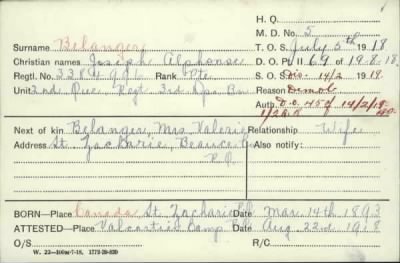 H. Q.
M. D. No. 5
Surname Belanger T. O. S. July 5th 1918
Christian names Joseph Alphonse D. O. Pt. II 69 of 19.8.18.
Regtl. No. 3284991 Rank Pte S. O. S. Dis. 14/2 1919.
Unit 2nd Que. Regt 3rd Dps Bn Reason Demob
Auth. D.O. 45 of 14/2/19
Next of kin Belanger, Mrs Valerie Relationship Wife
Address St. Zacharie, Beauce Co Also notify:
P.Q.
BORN—Place Canada St. Zacharie Date Mar. 14th 1893
ATTESTED—Place Valcartier Camp Date Aug. 22nd 1918
O/S R/C
W. 22—100M-7-18. 1772-39-839